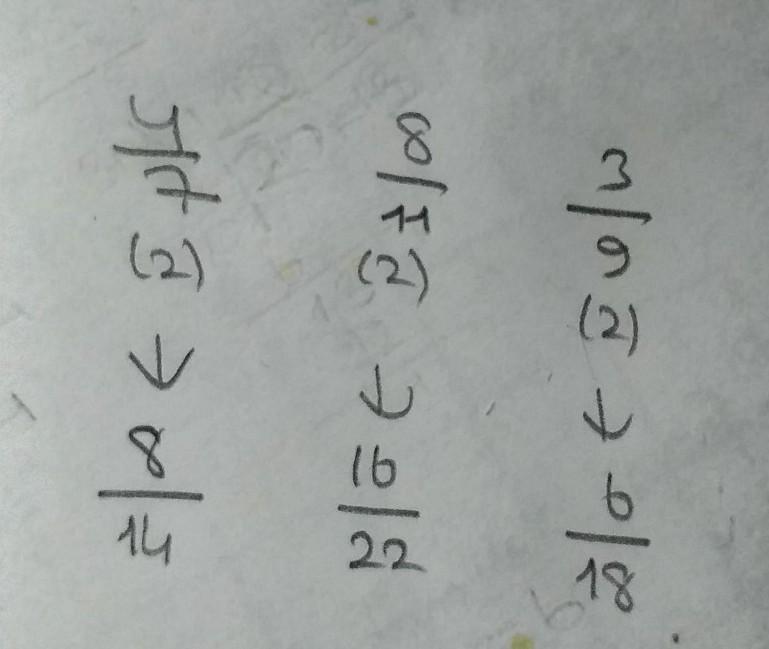 4/7 (2) ↓ 8/14
8/11 (2) ↓ 16/22
3/9 (2) ↓ 6/18